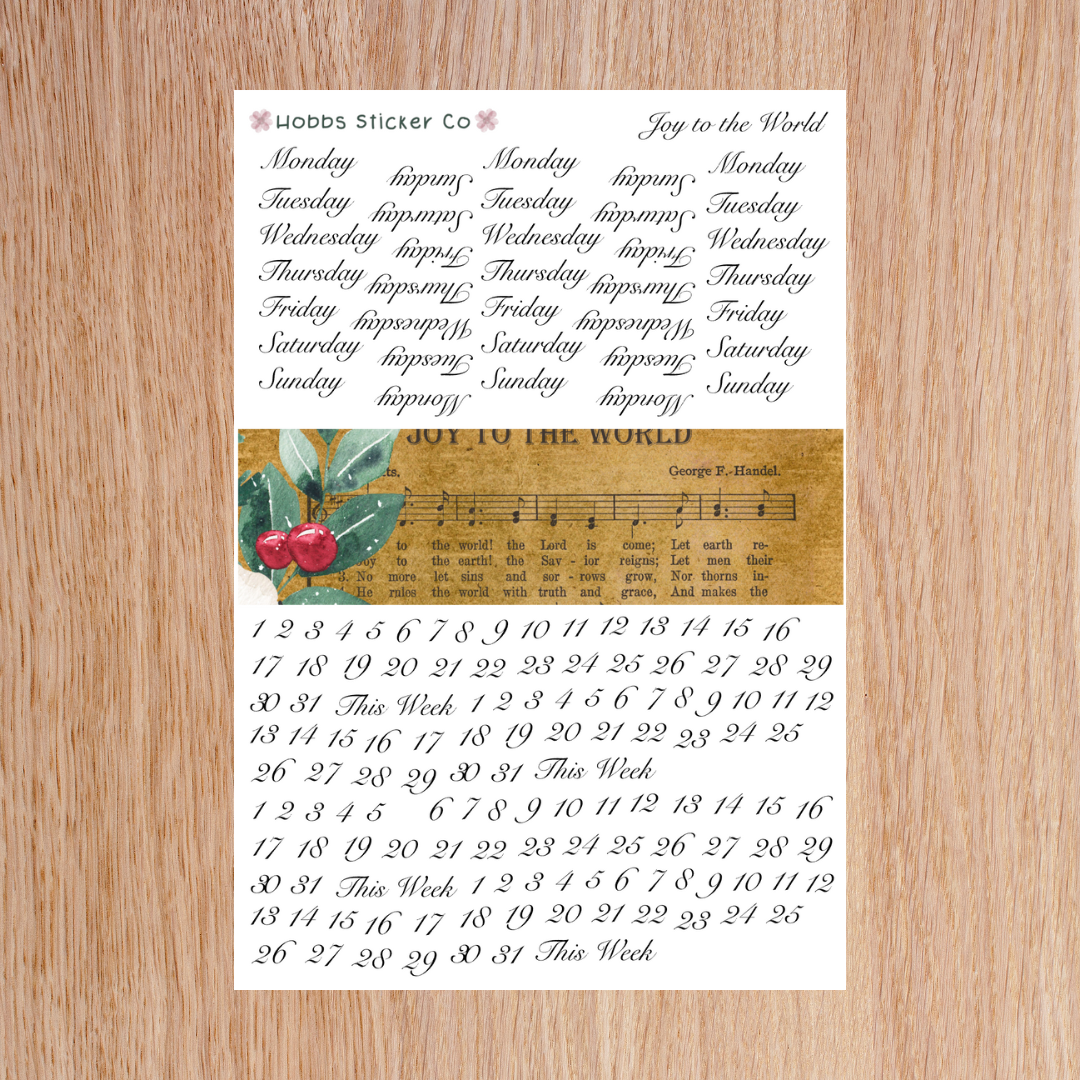 Hobbs Sticker Co
Joy to the World
Monday Sunday Monday Sunday Monday
Tuesday Saturday Tuesday Saturday Tuesday
Wednesday Friday Wednesday Friday Wednesday
Thursday Thursday Thursday Thursday Thursday
Friday Wednesday Friday Wednesday Friday
Saturday Tuesday Saturday Tuesday Saturday
Sunday Monday Sunday Monday Sunday
JOY TO THE WORLD
ts. George F. Handel.
to the world! the Lord is come; Let earth re-
oy to the earth! the Sav - ior reigns; Let men their
3. No more let sins and sor - rows grow, Nor thorns in-
He rules the world with truth and grace, And makes the
1 2 3 4 5 6 7 8 9 10 11 12 13 14 15 16
17 18 19 20 21 22 23 24 25 26 27 28 29
30 31 This Week 1 2 3 4 5 6 7 8 9 10 11 12
13 14 15 16 17 18 19 20 21 22 23 24 25
26 27 28 29 30 31 This Week
1 2 3 4 5 6 7 8 9 10 11 12 13 14 15 16
17 18 19 20 21 22 23 24 25 26 27 28 29
30 31 This Week 1 2 3 4 5 6 7 8 9 10 11 12
13 14 15 16 17 18 19 20 21 22 23 24 25
26 27 28 29 30 31 This Week